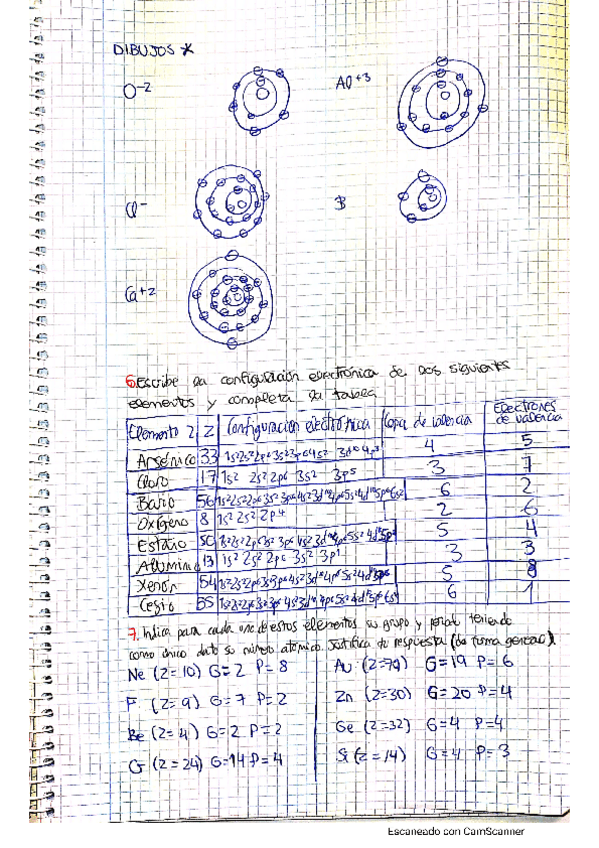 DIBUJOS *
O-2 Al+3
Cl- B
Ca+2
6. Escribe la configuración electrónica de los siguientes
elementos y completa la tabla
Elemento Z Configuración electrónica Capa de valencia Electrones de valencia
Arsénico 33 1s2 2s2 2p6 3s2 3p6 4s2 3d10 4p3 4 5
Cloro 17 1s2 2s2 2p6 3s2 3p5 3 7
Bario 56 1s2 2s2 2p6 3s2 3p6 4s2 3d10 4p6 5s2 4d10 5p6 6s2 6 2
Oxígeno 8 1s2 2s2 2p4 2 6
Estaño 50 1s2 2s2 2p6 3s2 3p6 4s2 3d10 4p6 5s2 4d10 5p2 5 4
Aluminio 13 1s2 2s2 2p6 3s2 3p1 3 3
Xenón 54 1s2 2s2 2p6 3s2 3p6 4s2 3d10 4p6 5s2 4d10 5p6 5 8
Cesio 55 1s2 2s2 2p6 3s2 3p6 4s2 3d10 4p6 5s2 4d10 5p6 6s1 6 1
7. Indica para cada uno de estos elementos su grupo y periodo teniendo
como único dato su número atómico. Justifica tu respuesta (de forma general).
Ne (Z=10) G=2 P=8 Au (Z=79) G=19 P=6
F (Z=9) G=7 P=2 Zn (Z=30) G=20 P=4
Be (Z=4) G=2 P=2 Ge (Z=32) G=4 P=4
Cr (Z=24) G=14 P=4 Si (Z=14) G=4 P=3
Escaneado con CamScanner